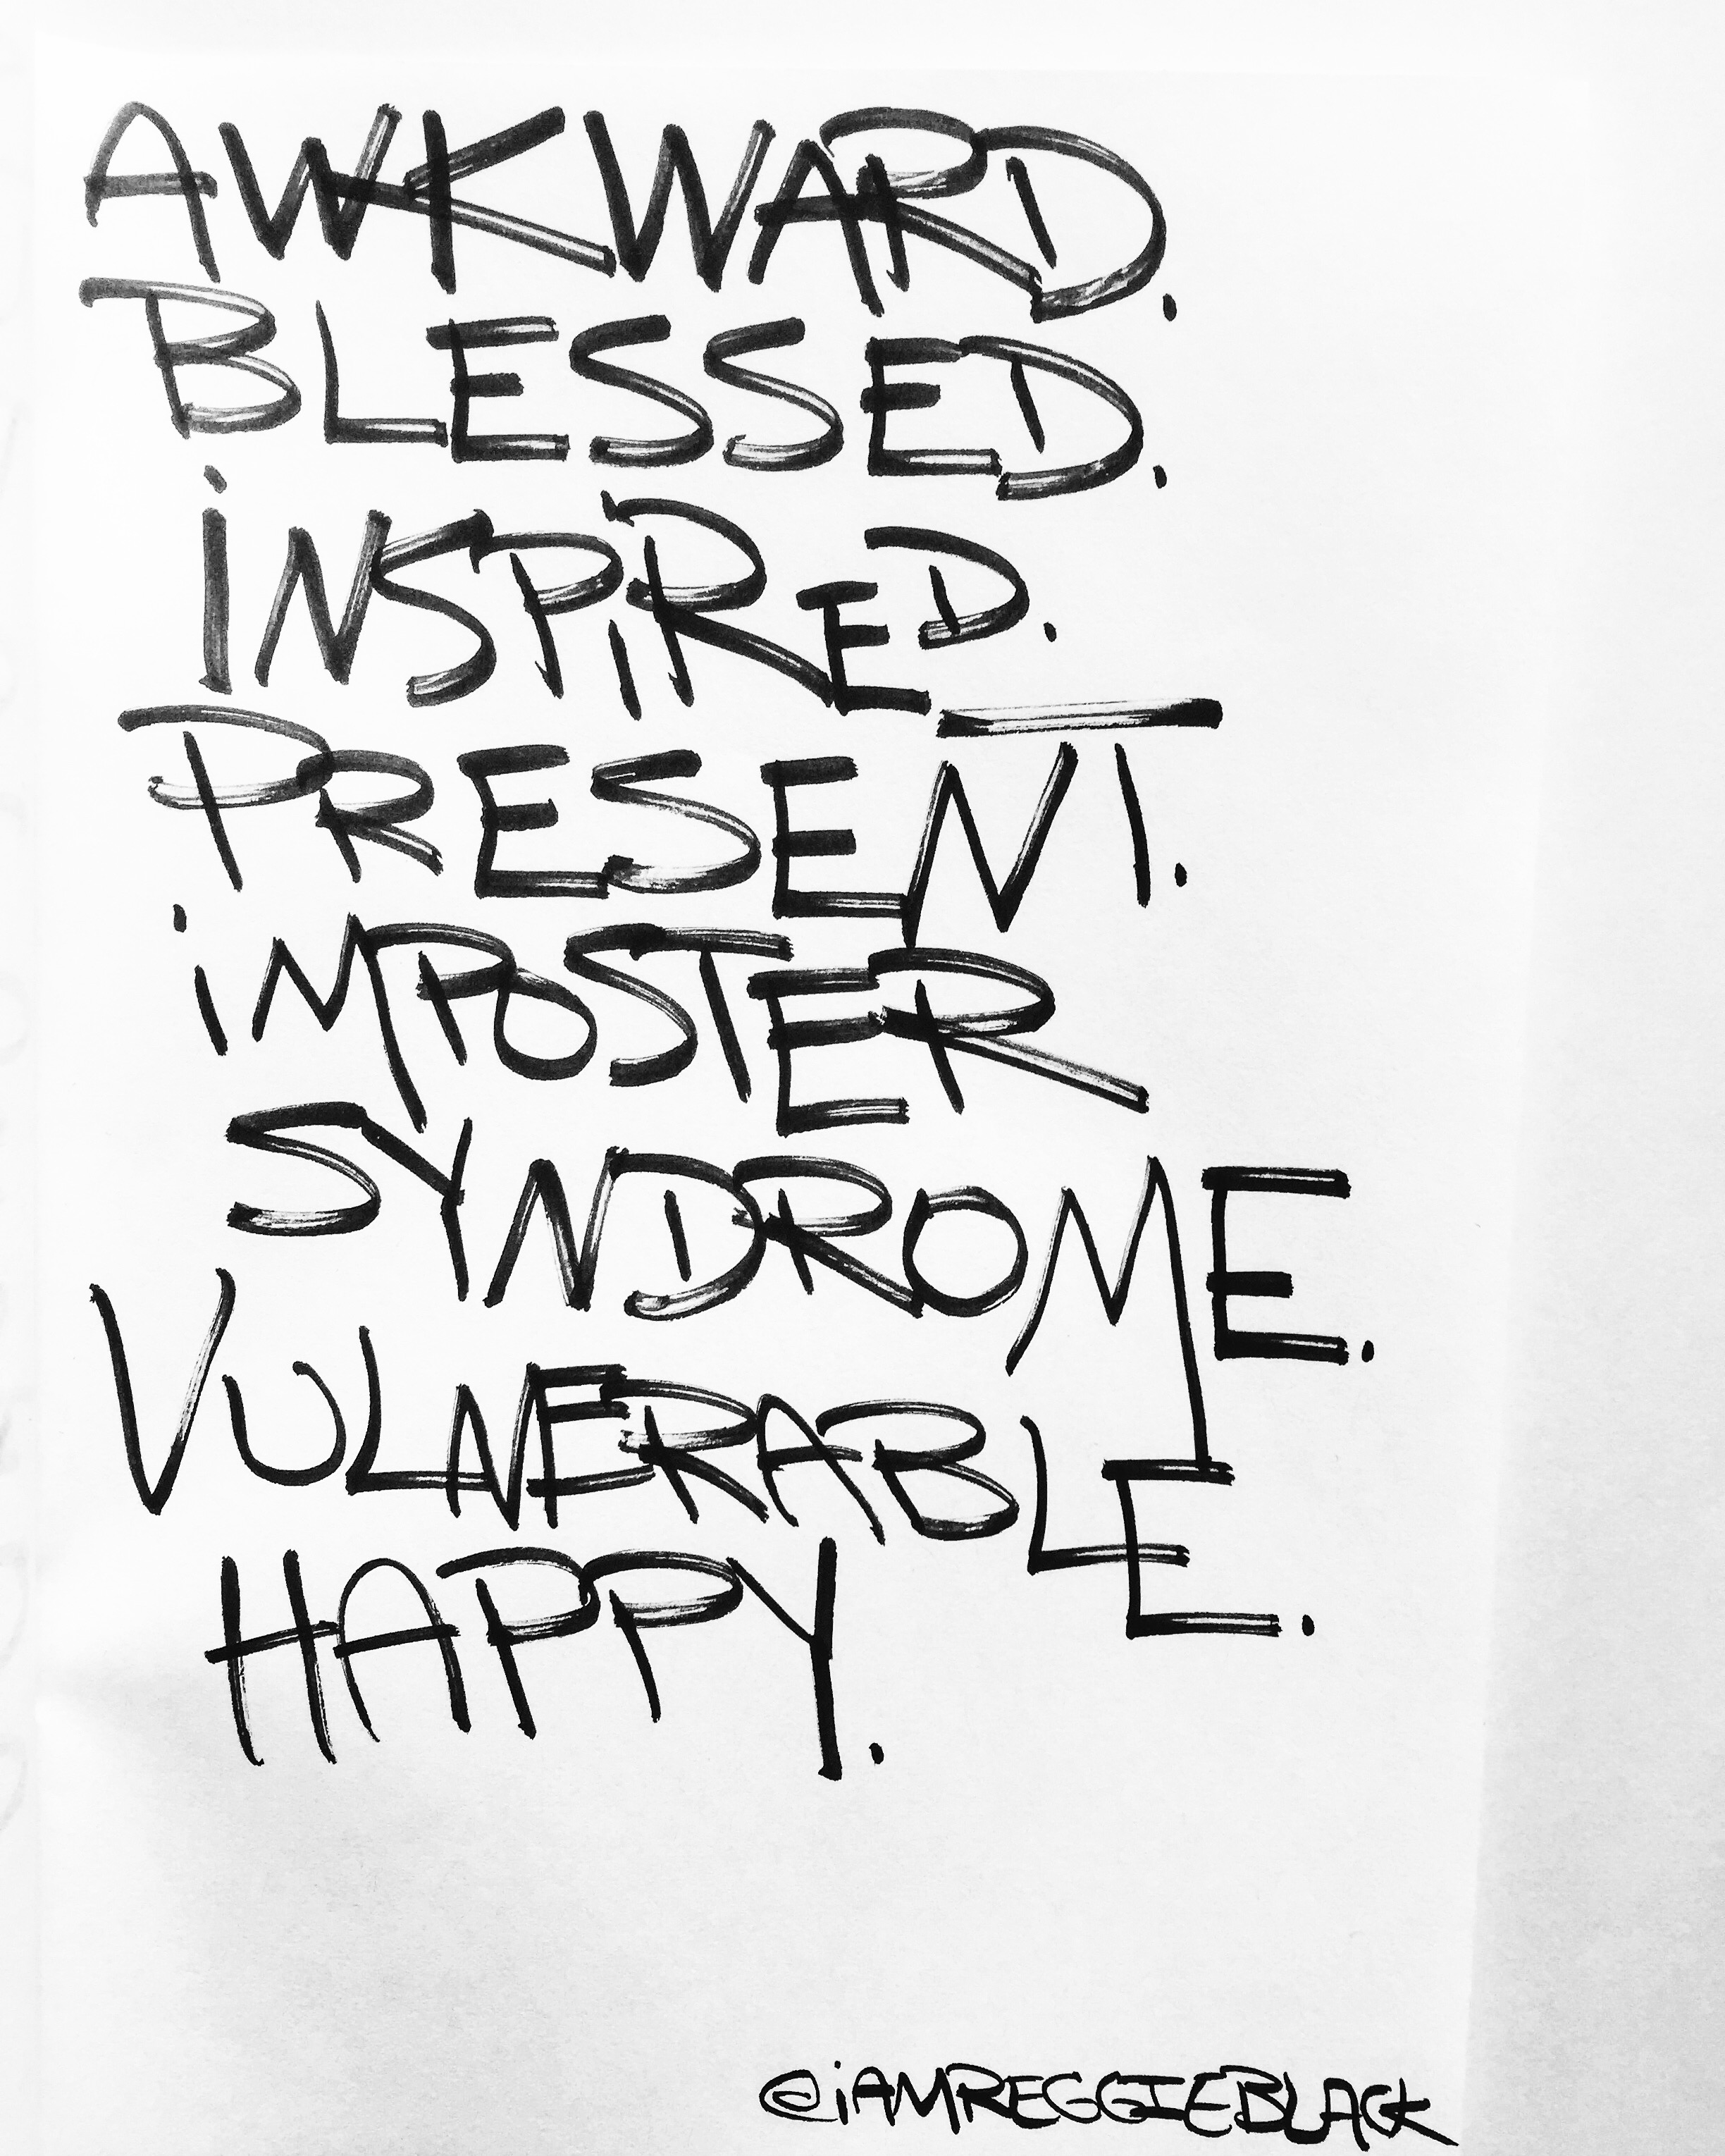 AWKWARD.
BLESSED.
iNSPiRED.
PRESENT.
iMPOSTER
SYNDROME.
VULNERABLE.
HAPPY.
@iAMREGGIEBLACK